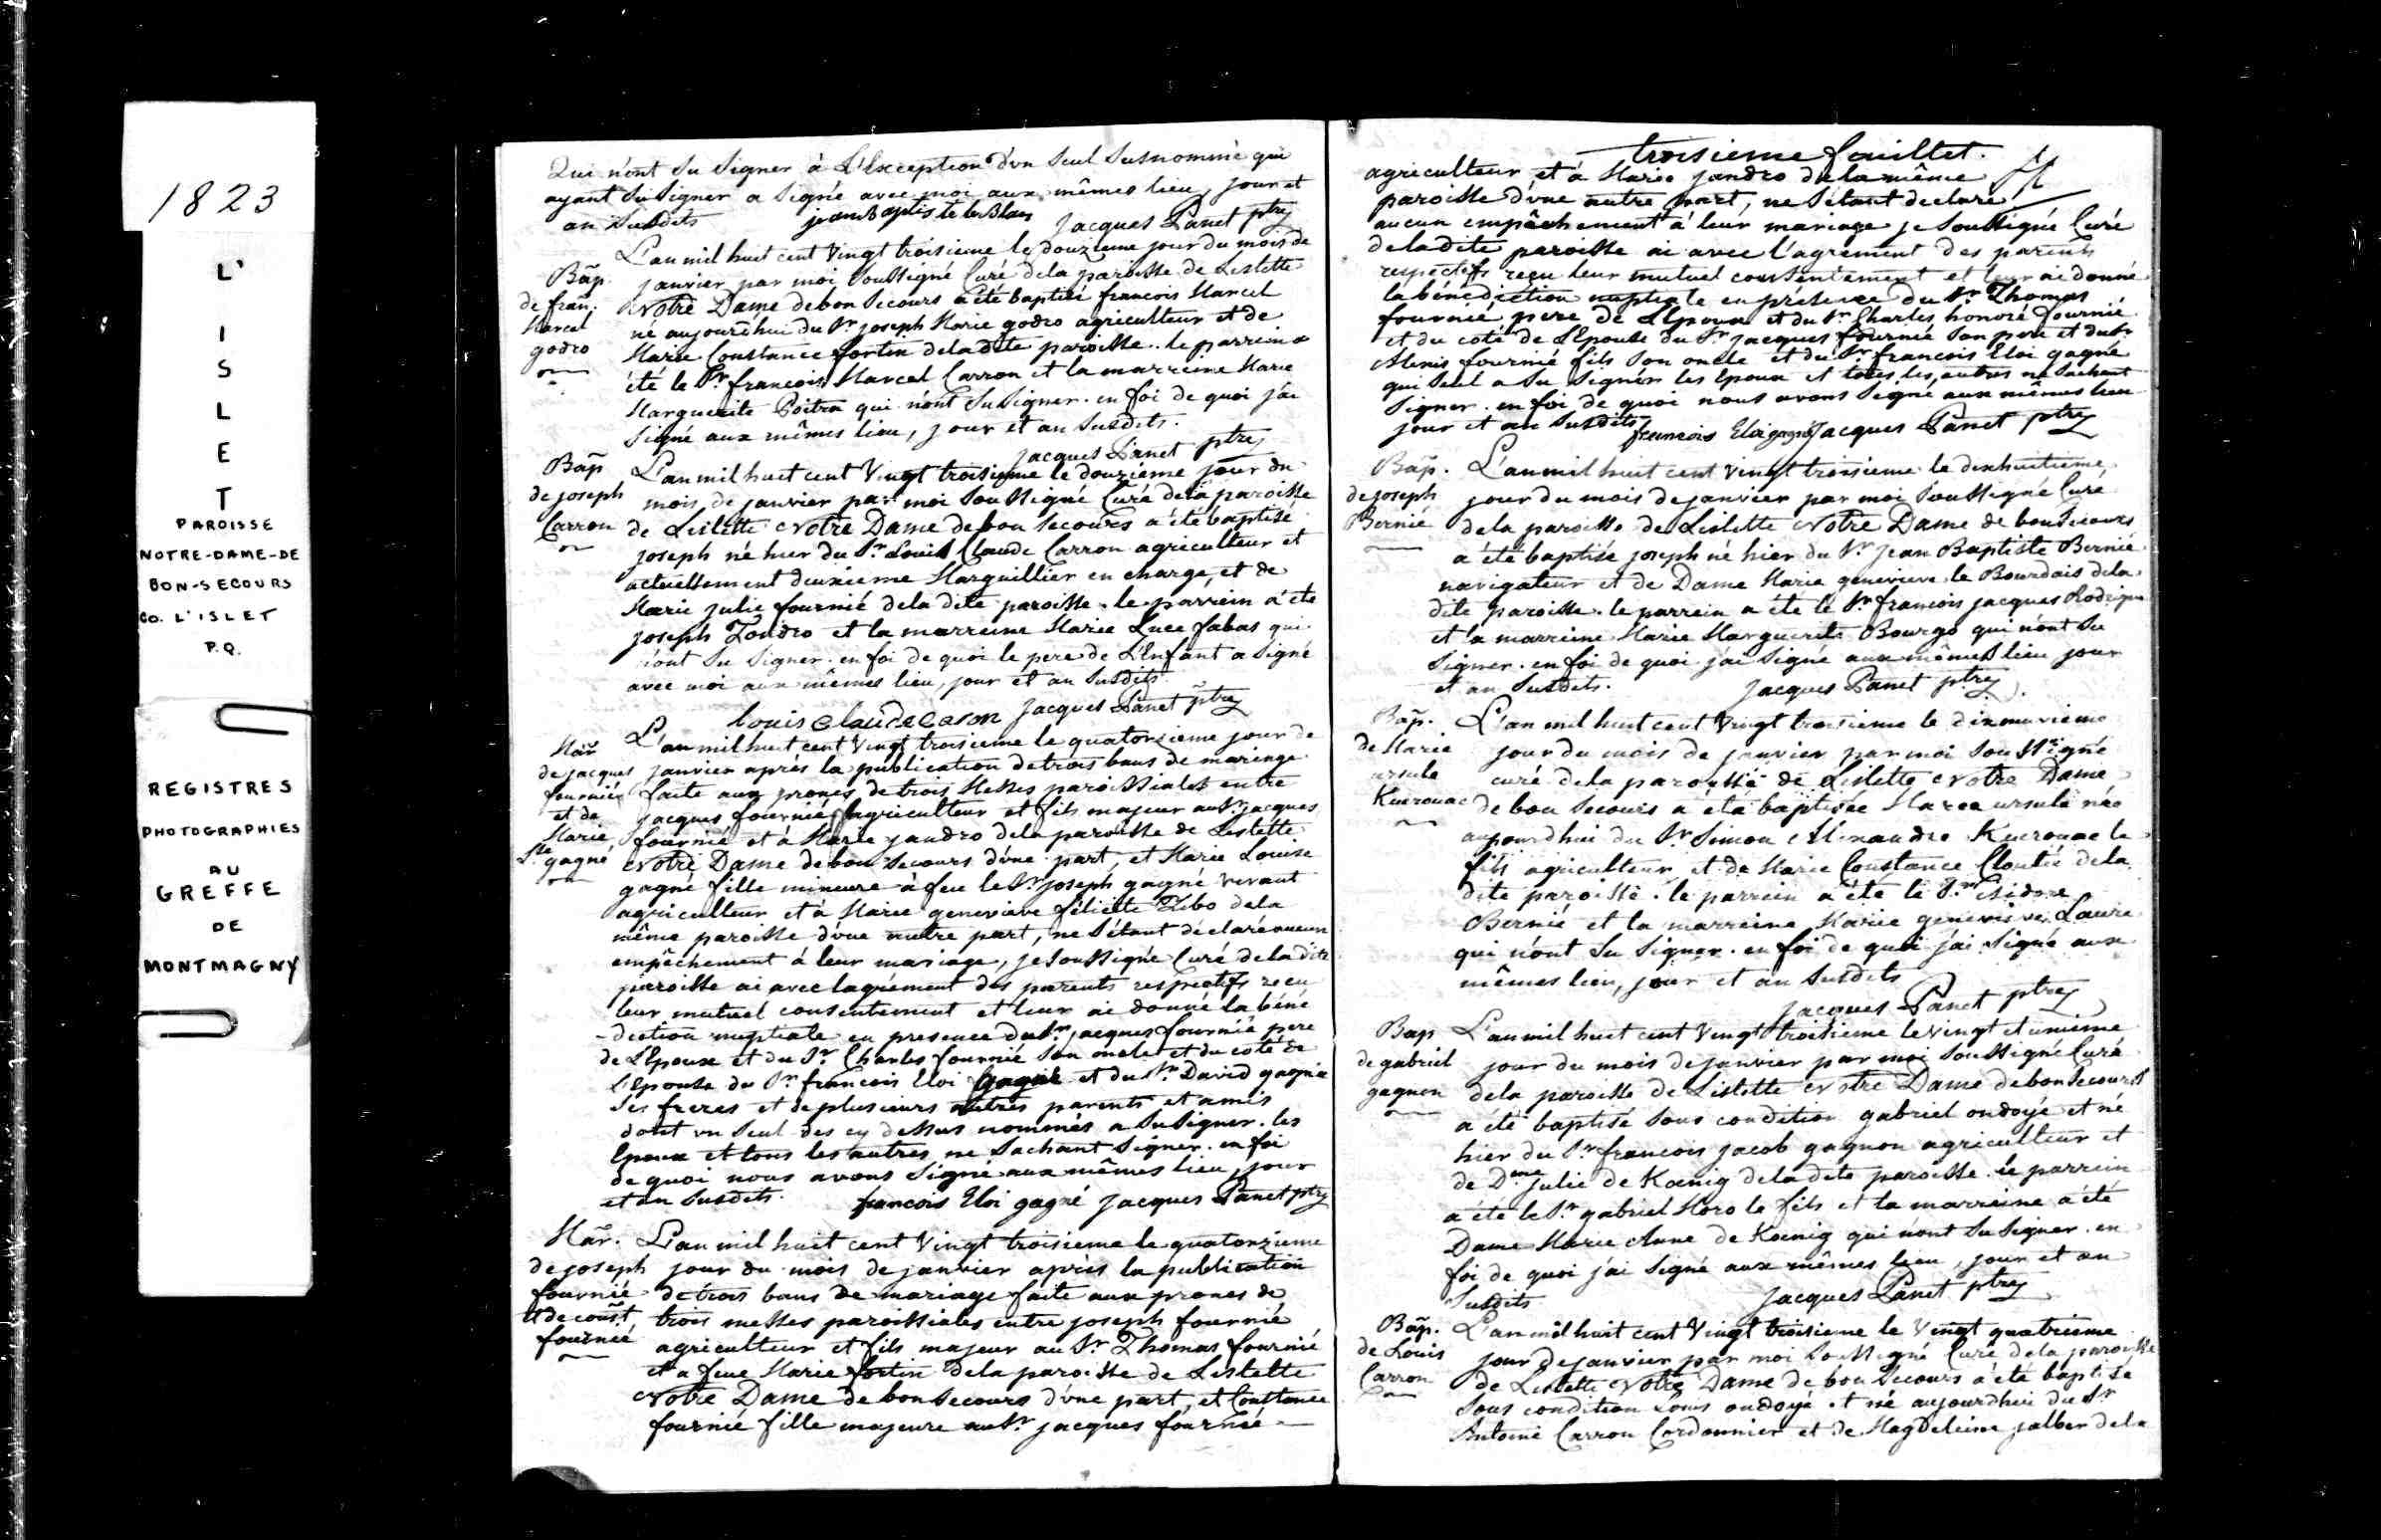 1823
L'
I
S
L
E
T
PAROISSE
NOTRE-DAME-DE
BON-SECOURS
CO. L'ISLET
P.Q.
REGISTRES
PHOTOGRAPHIES
AU
GREFFE
DE
MONTMAGNY
Qui n'ont su signer à L'Exception d'un seul susnommé qui
ayant su signer a signé avec moi aux mêmes lieu, jour et
an susdits jean Baptiste leBlan Jacques Panet ptre
L'an mil huit cent vingt troisieme le douzieme jour du mois de
Bap̃. janvier par moi soussigné Curé dela paroisse de Lislette
de fran. Notre Dame de bon secours a été baptisé francois Marcel
Marcel né aujourd'hui du Sr joseph Marie godro agriculteur et de
godro Marie Constance fortin deladite paroisse. le parrein a
été le Sr francois Marcel Carron et la marreine Marie
Marguerite Poitra qui n'ont su signer. en foi de quoi j'ai
signé aux mêmes lieu, jour et an susdits.
Jacques Panet ptre
Bap̃ L'an mil huit cent Vingt troisieme le douzieme jour du
de joseph mois de janvier par moi soussigné Curé dela paroisse
Carron de Lislette Notre Dame de bon secours a été baptisé
joseph né hier du Sr Louis Claude Carron agriculteur et
actuellement deuxieme Marguillier en charge, et de
Marie Julie fournié dela dite paroisse. le parrein a été
joseph Zondro et la marreine Marie Luce fabas qui
n'ont su signer. en foi de quoi le pere de L'Enfant a signé
avec moi aux mêmes lieu, jour et an susdits
Louis Claude Caron Jacques Panet ptre
Mar̃ L'an mil huit cent Vingt troisieme le quatorzieme jour de
de jacques janvier après la publication de trois bans de mariage
fournié faite aux prones de trois Messes paroissiales entre
et de jacques fournié agriculteur et fils majeur au Sr jacques
Marie fournié et à Marie jandro dela paroisse de Lislette
Lse gagné Notre Dame de bon secours d'une part, et Marie Louise
gagné fille mineure à feu le Sr joseph gagné vivant
agriculteur et à Marie genevieve félicité Zibo dela
même paroisse d'une autre part, ne s'étant déclaré aucun
empêchement à leur mariage, je soussigné Curé dela dite
paroisse ai avec lagrément des parents respectifs recu
leur mutuel consentement et leur ai donné la béné
-diction nuptiale en presence du Sr jacques fournié pere
de L'Epoux et du Sr Charles fournié son oncle et du coté de
l'Epouse du Sr francois Eloi gagné et du Sr David gagné
ses freres et de plusieurs autres parents et amis
dont un seul des cy dessus nommés a su signer. les
Epoux et tous les autres ne sachant signer. en foi
de quoi nous avons signé aux mêmes lieu, jour
et an susdits. francois Eloi gagné Jacques Panet ptre
Mar̃. L'an mil huit cent Vingt troisieme le quatorzieme
de joseph jour du mois de janvier après la publication
fournié de trois bans de mariage faite aux prones de
et de const. trois messes paroissiales entre joseph fournié
fournié agriculteur et fils majeur au Sr Thomas fournié
et a feue Marie fortin dela paroisse de Lislette
Notre Dame de bon secours d'une part, et Constance
fournié fille majeure au Sr. jacques fournié
troisieme fouillet.
agriculteur et à Marie jandro dela même
paroisse d'une autre part, ne s'étant declaré
aucun empêchement à leur mariage je soussigné Curé
deladite paroisse ai avec l'agrement des parents
respectifs reçu leur mutuel consentement et leur ai donné
la bénédiction nuptiale en presence du Sr Thomas
fournié pere de L'Epoux et du Sr Charles honoré fournié
et du coté de L'Epouse du Sr jacques fournié son pere et du Sr
Alexis fournié fils son oncle et du Sr francois Eloi gagné
qui seul a su signer les Epoux et tous les autres ne sachant
signer. en foi de quoi nous avons signé aux mêmes lieu
jour et an susdits francois Eloi gagné Jacques Panet ptre
Bap̃. L'an mil huit cent Vingt troisieme le dixhuitieme
de joseph jour du mois de janvier par moi soussigné Curé
Bernié dela paroisse de Lislette Notre Dame de bon secours
a été baptisé joseph né hier du Sr Jean Baptiste Bernié
navigateur et de Dame Marie genevieve le Bourdais dela
dite paroisse. le parrein a été le Sr francois jacques Rodrigue
et la marreine Marie Marguerite Bourgo qui n'ont su
signer. en foi de quoi j'ai signé aux mêmes lieu jour
et an susdits. Jacques Panet ptre
Bap̃. L'an mil huit cent Vingt troisieme le dixneuvieme
de Marie jour du mois de janvier par moi soussigné
ursule curé dela paroisse de Lislette Notre Dame
Kuerouac de bon secours a été baptisée Marie ursule née
aujourdhui du Sr Simon Alexandre Kuerouac le
fils agriculteur et de Marie Constance Cloutié dela
dite paroisse. le parrein a été le Sr isidore
Bernié et la marreine Marie genevieve Laure
qui n'ont su signer. en foi de quoi j'ai signé aux
mêmes lieu, jour et an susdits
Jacques Panet ptre
Bap L'an mil huit cent Vingt troisieme le vingt et unieme
de gabriel jour du mois de janvier par moi soussigné Curé
gagnon dela paroisse de Lislette Notre Dame de bon secours
a été baptisé sous condition gabriel ondoyé et né
hier du Sr francois jacob gagnon agriculteur et
de Dme julie de Kœnig dela dite paroisse. le parrein
a été le Sr gabriel Moro le fils et la marreine a été
Dame Marie Anne de Kœnig qui n'ont su signer. en
foi de quoi j'ai signé aux mêmes lieu, jour et an
susdits Jacques Panet ptre
Bap̃. L'an mil huit cent Vingt troisieme le Vingt quatrieme
de Louis jour de janvier par moi soussigné Curé dela paroisse
Carron de Lislette Notre Dame de bon secours a été baptisé
sous condition Louis ondoyé et né aujourdhui du Sr
Antoine Carron Cordonnier et de Magdeleine jalber dela